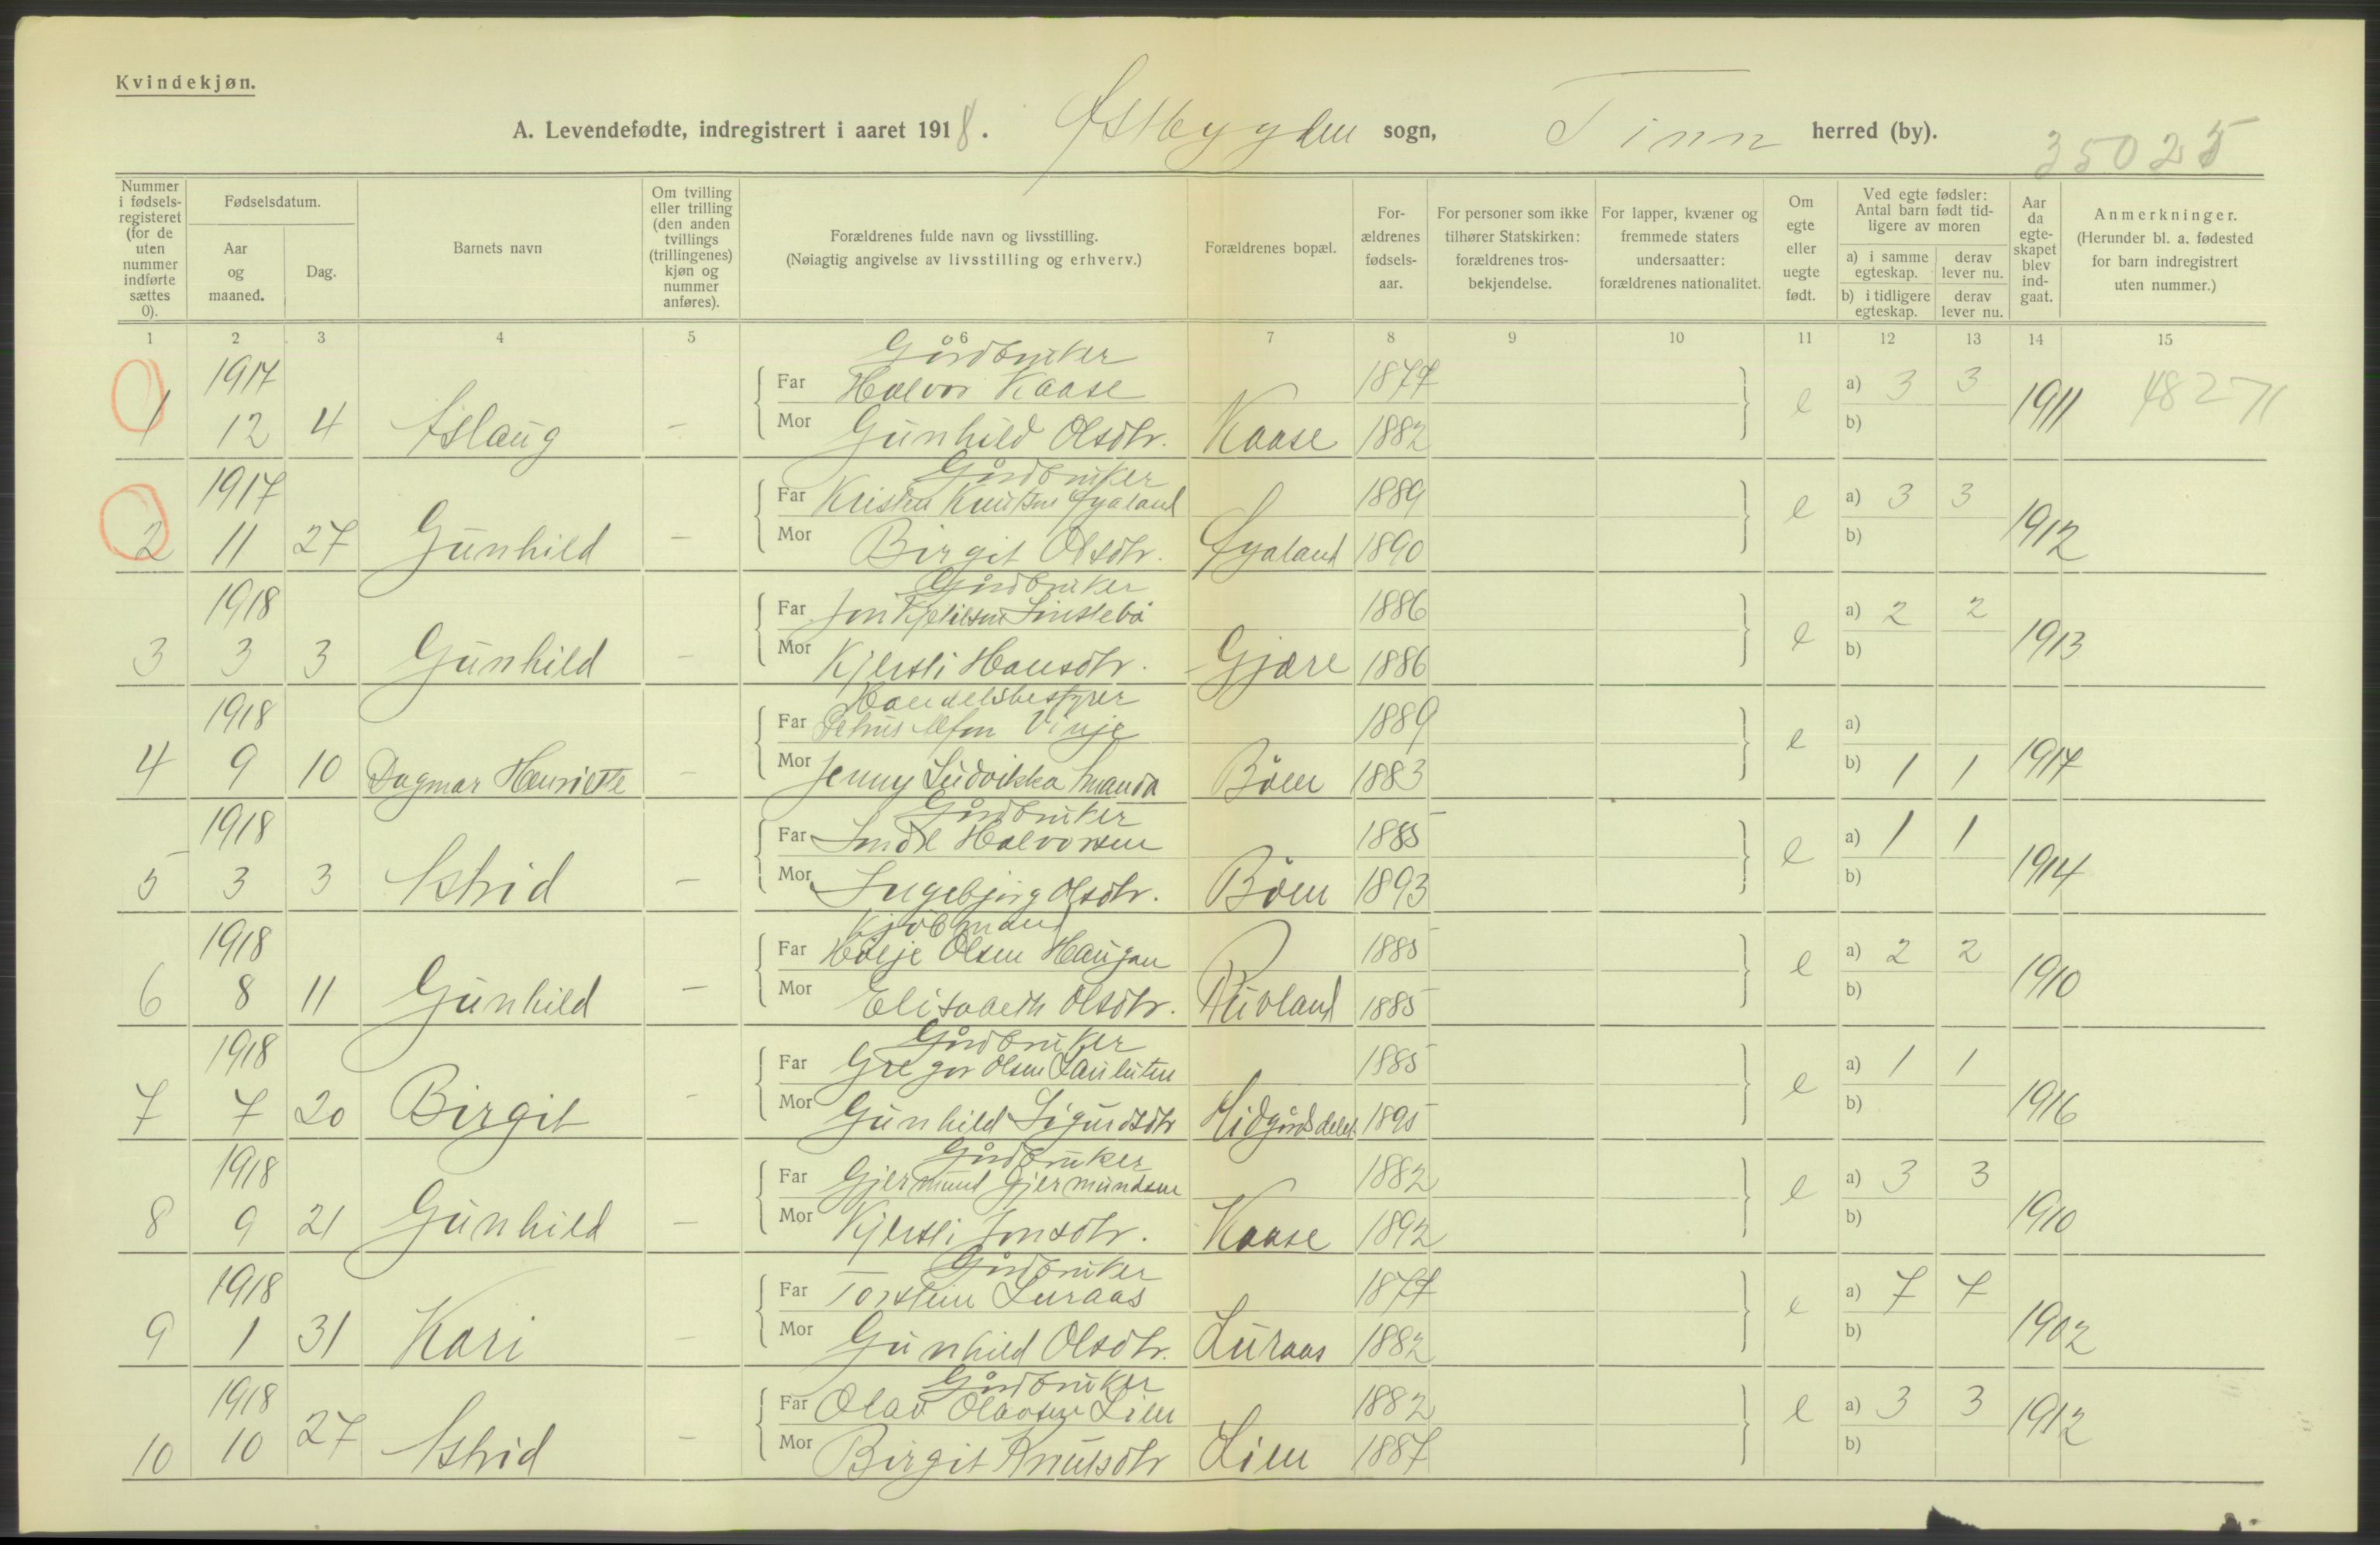 Kvindekjøn.
A. Levendefødte, indregistrert i aaret 1918. Østbygden sogn, Tinn herred (by). 35025
Nummer i fødsels-registeret (for de uten nummer indførte sættes 0).
Fødselsdatum.
Aar og maaned.
Dag.
Barnets navn
Om tvilling eller trilling (den anden tvillings (trillingenes) kjøn og nummer anføres).
Forældrenes fulde navn og livsstilling.
(Nøiagtig angivelse av livsstilling og erhverv.)
Forældrenes bopæl.
For-ældrenes fødsels-aar.
For personer som ikke tilhører Statskirken: forældrenes tros-bekjendelse.
For lapper, kvæner og fremmede staters undersaatter: forældrenes nationalitet.
Om egte eller uegte født.
Ved egte fødsler: Antal barn født tid-ligere av moren
a) i samme egteskap.
derav lever nu.
b) i tidligere egteskap.
derav lever nu.
Aar da egte-skapet blev ind-gaat.
Anmerkninger.
(Herunder bl. a. fødested for barn indregistrert uten nummer.)
1 2 3 4 5 6 7 8 9 10 11 12 13 14 15
Gårdbruker
1917 Far Halvor Kaase 1877 a) 3 3
1 12 4 Aslaug - Mor Gunhild Olsdtr. Kaase 1882 e b) 1911 48271
Gårdbruker
1917 Far Kristen Knutsen 1889 a) 3 3
2 11 27 Gunhild - Mor Birgit Olsdtr. 1890 e b) 1912
Gårdbruker
1918 Far Jon Kjetilsen 1886 a) 2 2
3 3 3 Gunhild - Mor Kjersti Hansdtr. Gjøre 1886 e b) 1913
Handelsbestyrer
1918 Far Petrus Vinje 1889 a)
4 9 10 Dagmar Henriette - Mor Jenny Ludvikka Amanda Bøen 1883 e b) 1 1 1917
Gårdbruker
1918 Far Halvorsen 1885 a) 1 1
5 3 3 Astrid - Mor Ingebjørg Olsdtr. Bøen 1893 e b) 1914
Kjøbmand
1918 Far Helje Olsen Haugan 1885 a) 2 2
6 8 11 Gunhild - Mor Elisabeth Olsdtr. 1885 e b) 1910
Gårdbruker
1918 Far Gregor Olsen 1885 a) 1 1
7 7 20 Birgit - Mor Gunhild Sigurdsdtr 1895 e b) 1916
Gårdbruker
1918 Far Gjermund Gjermundsen 1882 a) 3 3
8 9 21 Gunhild - Mor Kjersti Jonsdtr. Kaase 1892 e b) 1910
Gårdbruker
1918 Far Torstein Luraas 1877 a) 7 7
9 1 31 Kari - Mor Gunhild Olsdtr. Luraas 1882 e b) 1902
Gårdbruker
1918 Far Olav Olavsen Lien 1882 a) 3 3
10 10 27 Astrid - Mor Birgit Knutsdtr Lien 1887 e b) 1912